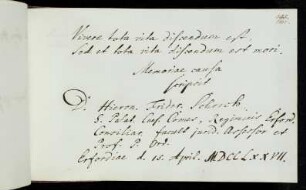 Vivere tota vita discendum est.
Sed et tota vita discendum est mori.
Memoriae causa
scripsit
D. Hieron. Frider. Schorch
S. Palat. Caes. Comes, Regiminis Erford.
Consiliar. facult. jurid. Assessor et
Prof. P. Ord.
Erfordiae d. 15. April. MDCCLXXVII.